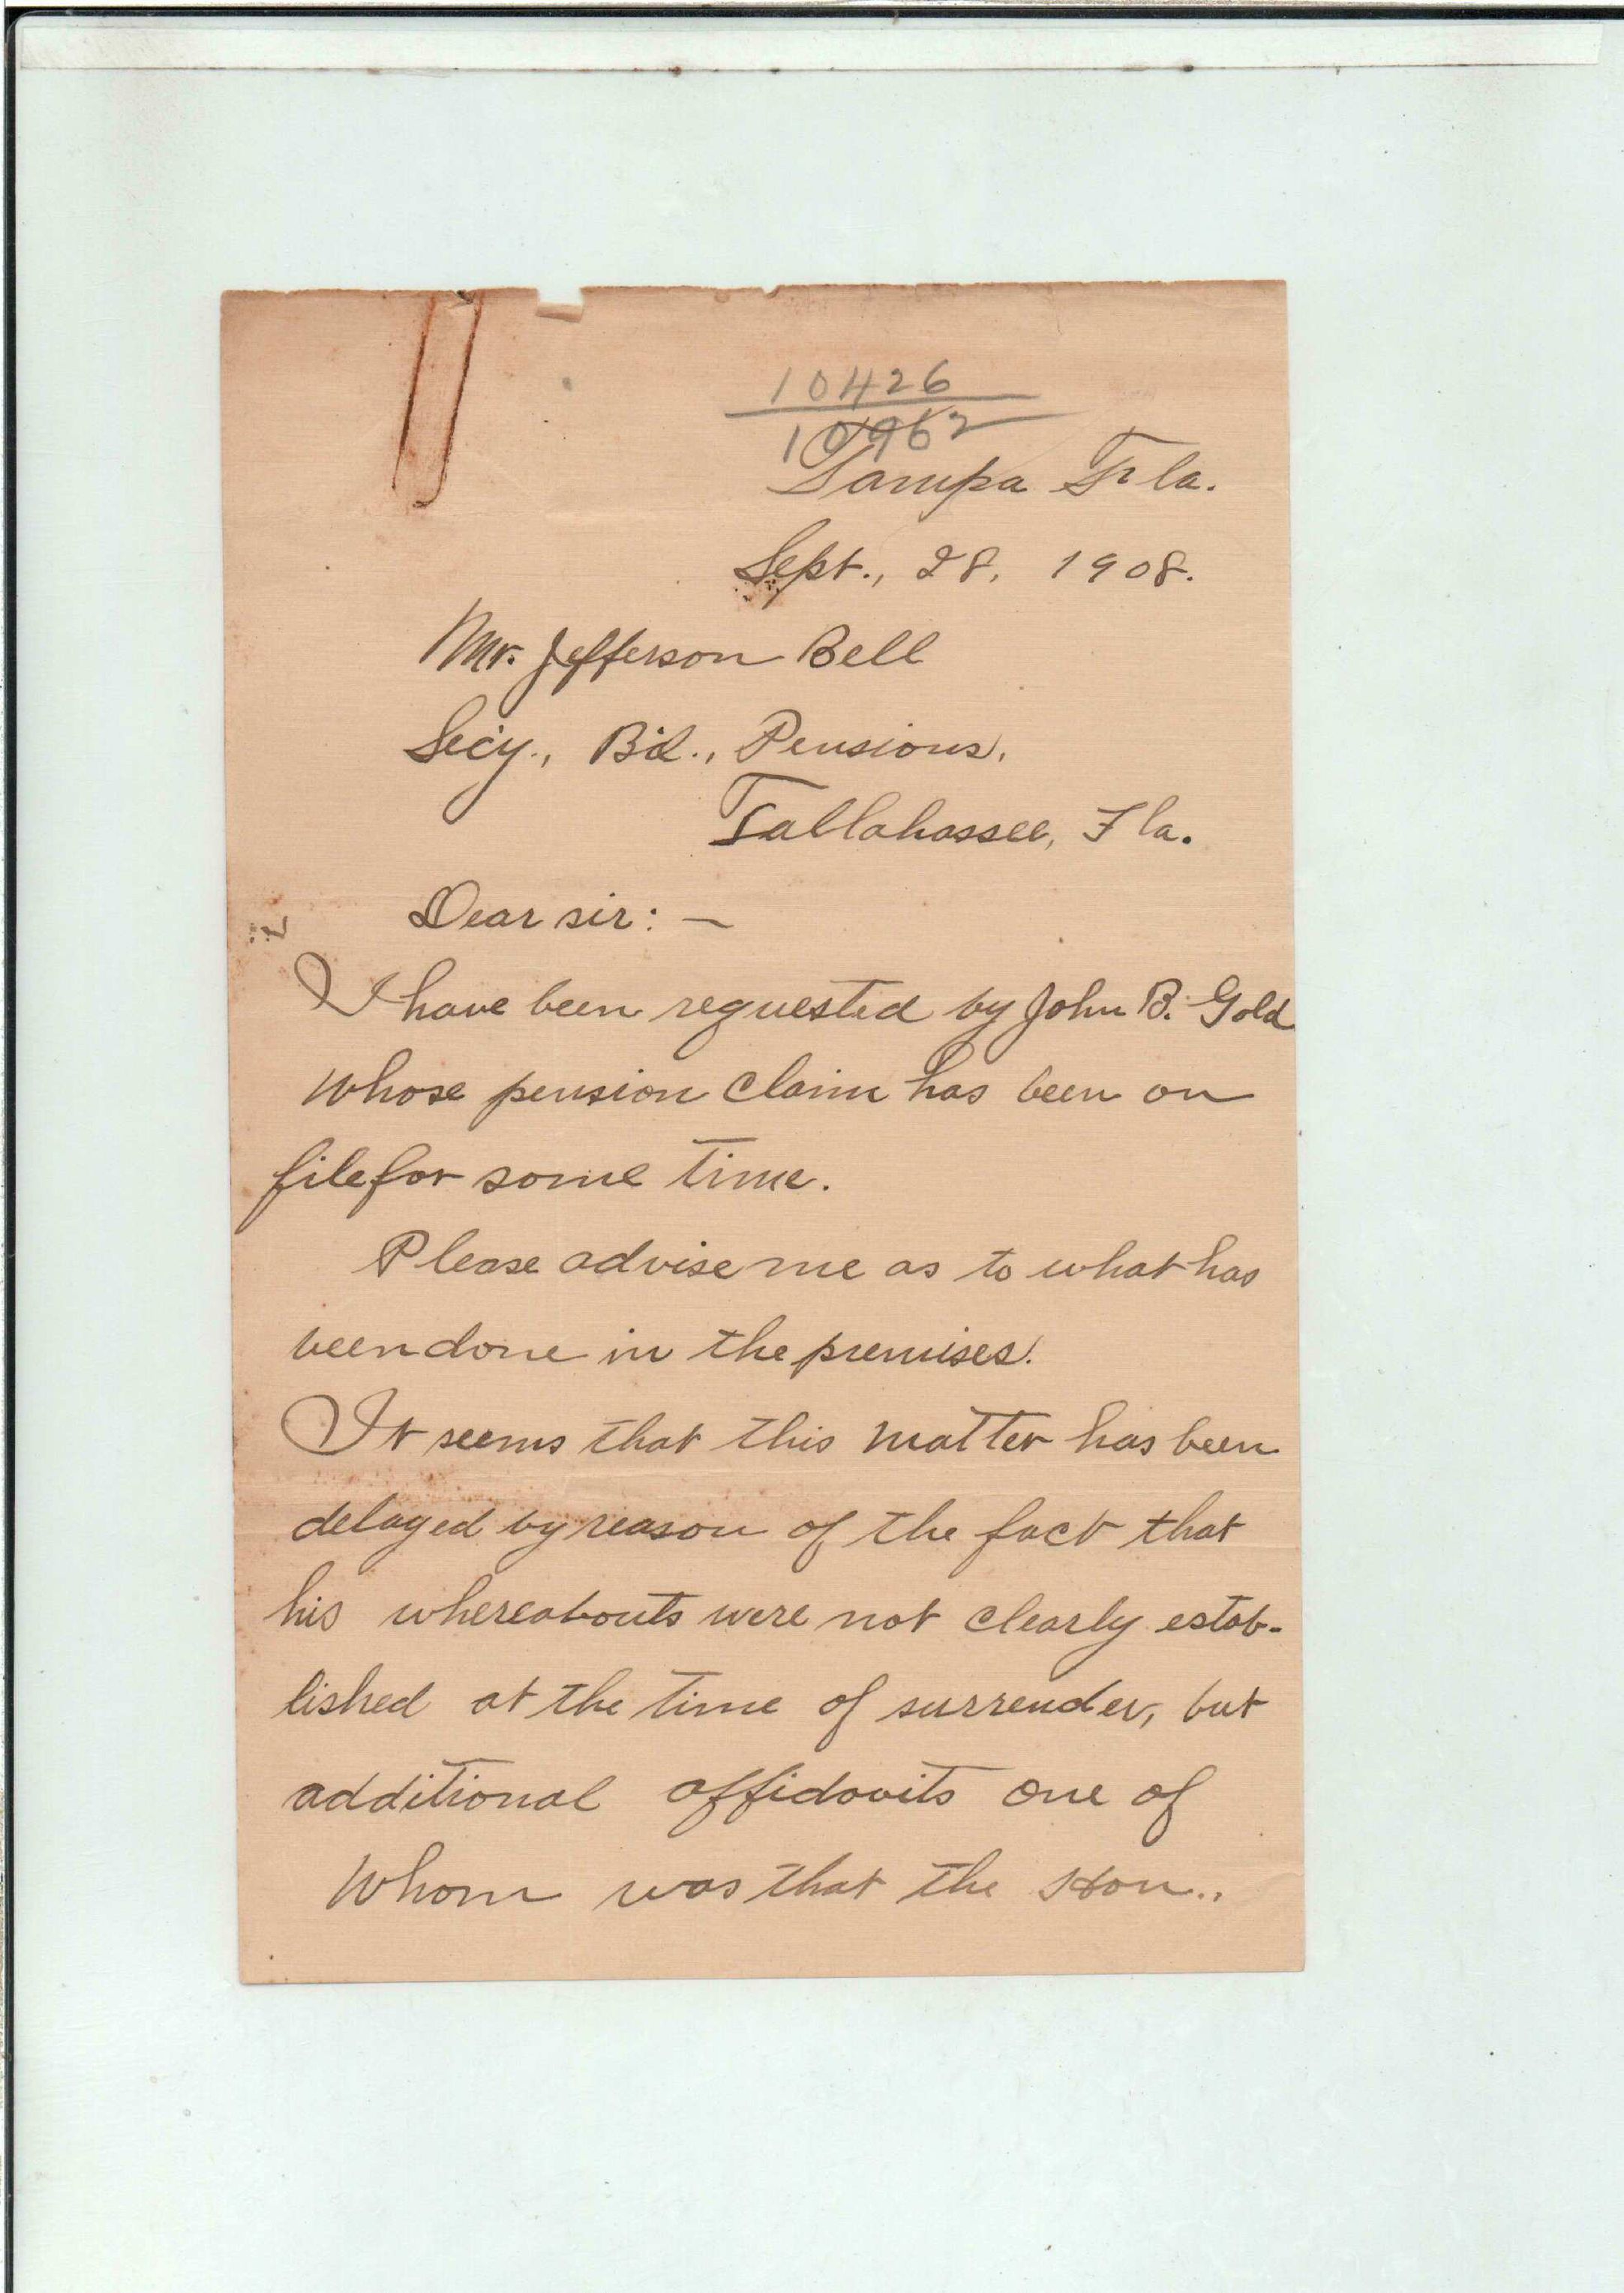 10426
10962
Tampa Fla.
Sept., 28, 1908.
Mr. Jefferson Bell
Sec'y., B'd., Pensions,
Tallahassee, Fla.
Dear sir: —
I have been requested by John B. Gold
whose pension claim has been on
file for some time.
Please advise me as to what has
been done in the premises.
It seems that this matter has been
delayed by reason of the fact that
his whereabouts were not clearly estab-
lished at the time of surrender, but
additional affidavits one of
whom was that the Hon.,